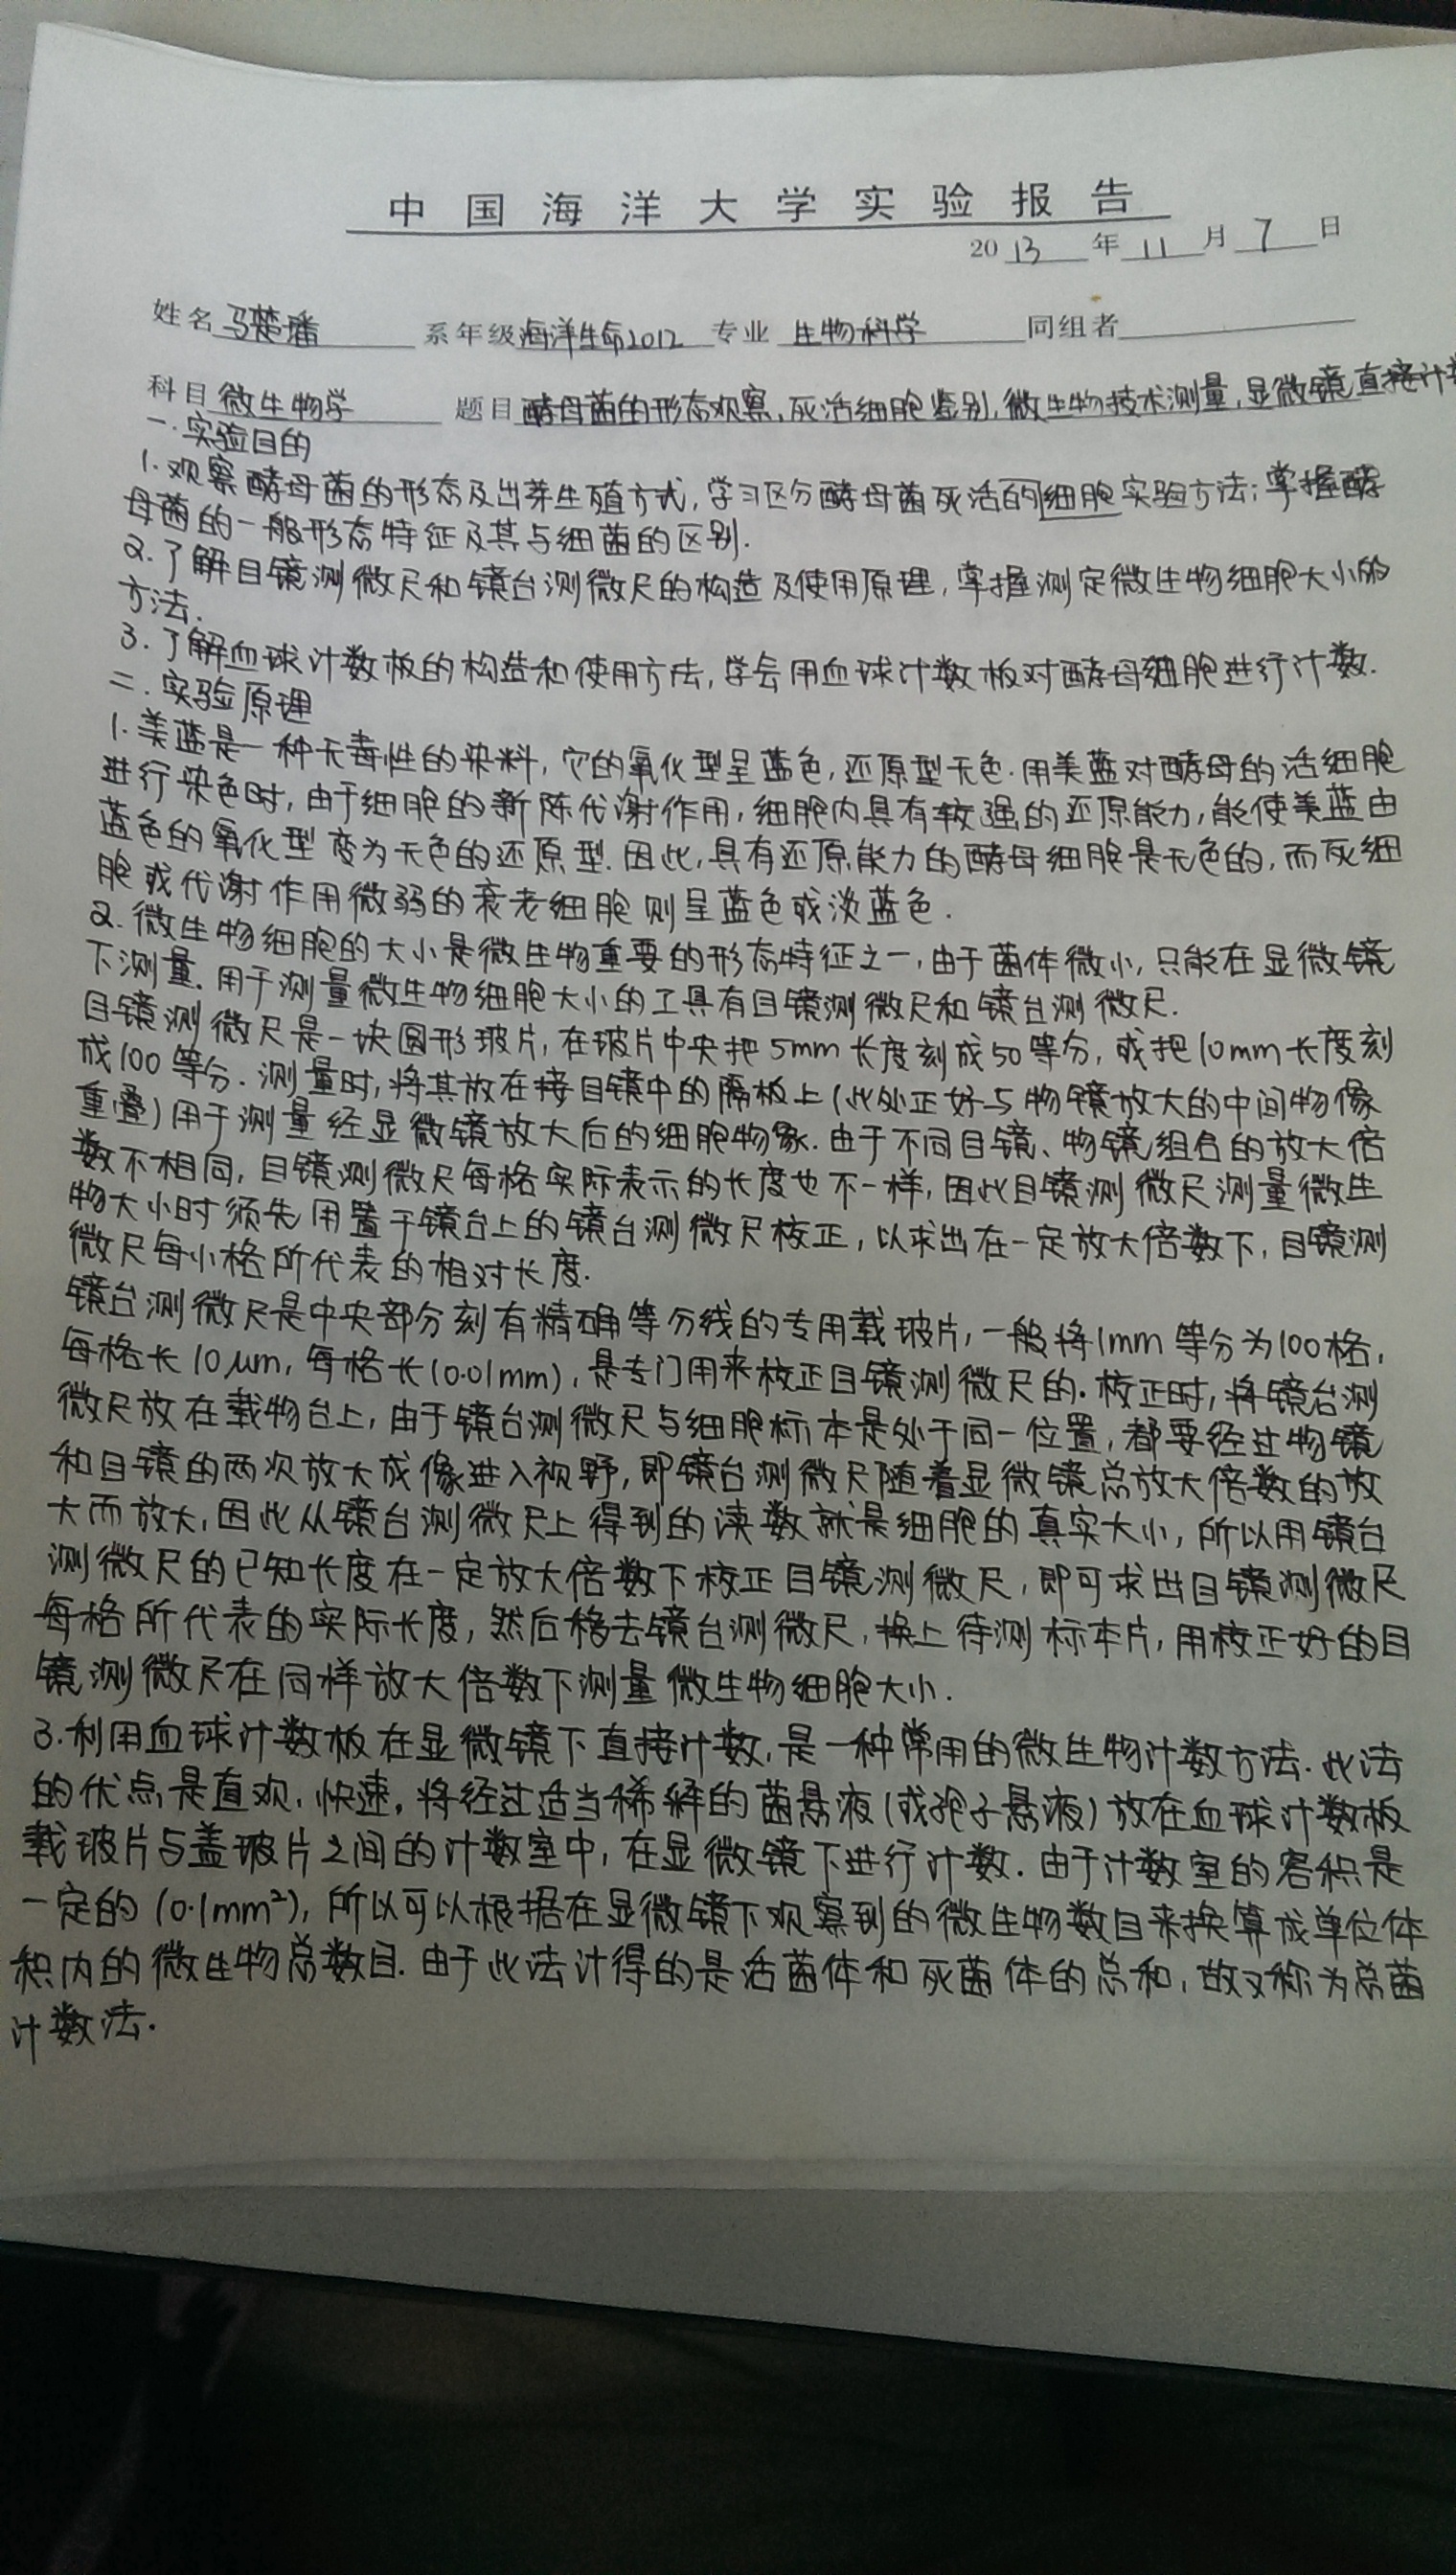 中国海洋大学实验报告
2013年11月7日
姓名 马楚璠 系年级 海洋生命2012 专业 生物科学 同组者
科目 微生物学 题目 酵母菌的形态观察,死活细胞鉴别,微生物技术测量,显微镜直接计
一.实验目的
1.观察酵母菌的形态及出芽生殖方式,学习区分酵母菌死活的细胞实验方法;掌握酵
母菌的一般形态特征及其与细菌的区别.
2.了解目镜测微尺和镜台测微尺的构造及使用原理,掌握测定微生物细胞大小的
方法.
3.了解血球计数板的构造和使用方法,学会用血球计数板对酵母细胞进行计数.
二.实验原理
1.美蓝是一种无毒性的染料,它的氧化型呈蓝色,还原型无色.用美蓝对酵母的活细胞
进行染色时,由于细胞的新陈代谢作用,细胞内具有较强的还原能力,能使美蓝由
蓝色的氧化型变为无色的还原型.因此,具有还原能力的酵母细胞是无色的,而死细
胞或代谢作用微弱的衰老细胞则呈蓝色或淡蓝色.
2.微生物细胞的大小是微生物重要的形态特征之一,由于菌体微小,只能在显微镜
下测量.用于测量微生物细胞大小的工具有目镜测微尺和镜台测微尺.
目镜测微尺是一块圆形玻片,在玻片中央把5mm长度刻成50等分,或把10mm长度刻
成100等分.测量时,将其放在接目镜中的隔板上(此处正好与物镜放大的中间物像
重叠)用于测量经显微镜放大后的细胞物象.由于不同目镜、物镜组合的放大倍
数不相同,目镜测微尺每格实际表示的长度也不一样,因此目镜测微尺测量微生
物大小时须先用置于镜台上的镜台测微尺校正,以求出在一定放大倍数下,目镜测
微尺每小格所代表的相对长度.
镜台测微尺是中央部分刻有精确等分线的专用载玻片,一般将1mm等分为100格,
每格长10μm,每格长(0.01mm),是专门用来校正目镜测微尺的.校正时,将镜台测
微尺放在载物台上,由于镜台测微尺与细胞标本是处于同一位置,都要经过物镜
和目镜的两次放大成像进入视野,即镜台测微尺随着显微镜总放大倍数的放
大而放大,因此从镜台测微尺上得到的读数就是细胞的真实大小,所以用镜台
测微尺的已知长度在一定放大倍数下校正目镜测微尺,即可求出目镜测微尺
每格所代表的实际长度,然后移去镜台测微尺,换上待测标本片,用校正好的目
镜测微尺在同样放大倍数下测量微生物细胞大小.
3.利用血球计数板在显微镜下直接计数,是一种常用的微生物计数方法.此法
的优点是直观,快速,将经过适当稀释的菌悬液(或孢子悬液)放在血球计数板
载玻片与盖玻片之间的计数室中,在显微镜下进行计数.由于计数室的容积是
一定的(0.1mm²),所以可以根据在显微镜下观察到的微生物数目来换算成单位体
积内的微生物总数目.由于此法计得的是活菌体和死菌体的总和,故又称为总菌
计数法.